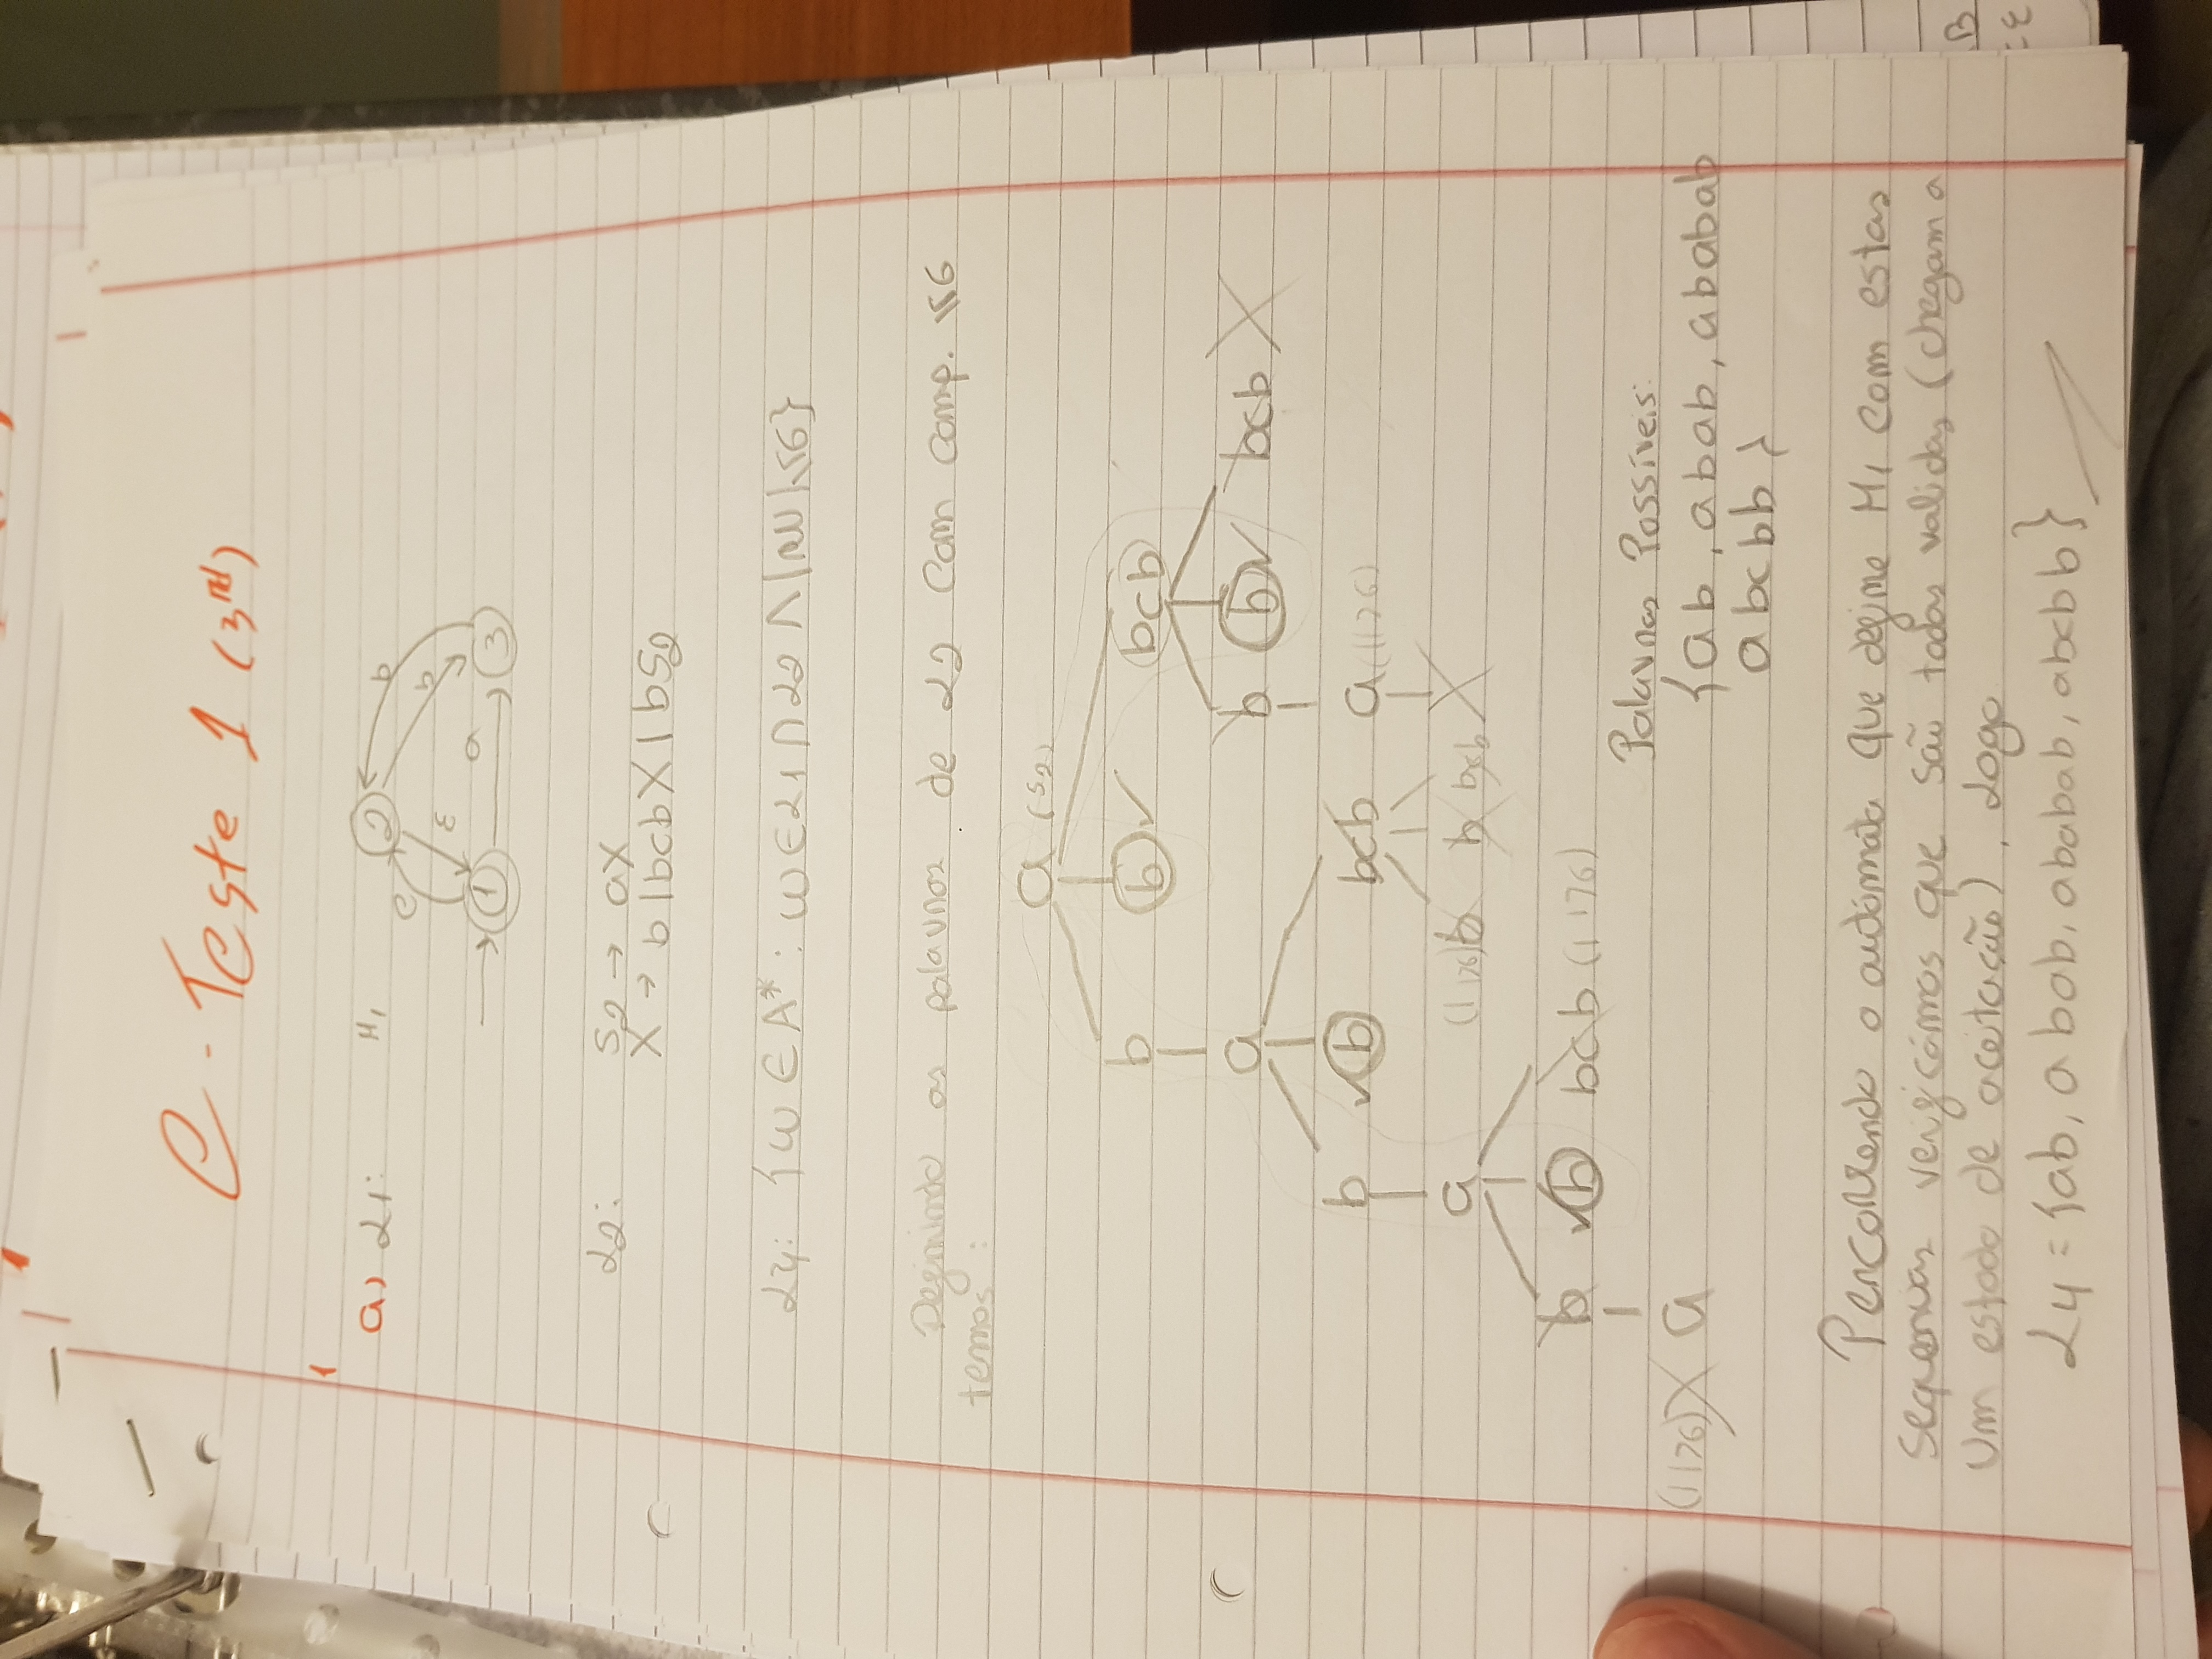 e-Teste 1 (3rd)
1
a) L1: M1
2
b
c
b
ε
a
1
3
L2: S2 → aX
X → b|bcbX|bS2
L4: {ω ∈ A* : ω ∈ L1 ∩ L2 ∧ |ω| ≤ 6}
Definindo as palavras de L2 com comp. ≤6
temos:
a (S2)
b b ✓ bcb
a b b ✓ bcb X
b ✓ b bcb a (||>6)
a (||>6) b b bcb X
b ✓ b bcb (||>6)
Palavras Possíveis:
(||>6) X a {ab, abab, ababab
abcbb}
Percorrendo o autómato que define M1 com estas
sequencias verificámos que são todas validas (chegam a
um estado de aceitação), Logo
L4 = {ab, abab, ababab, abcbb}
B
= ε